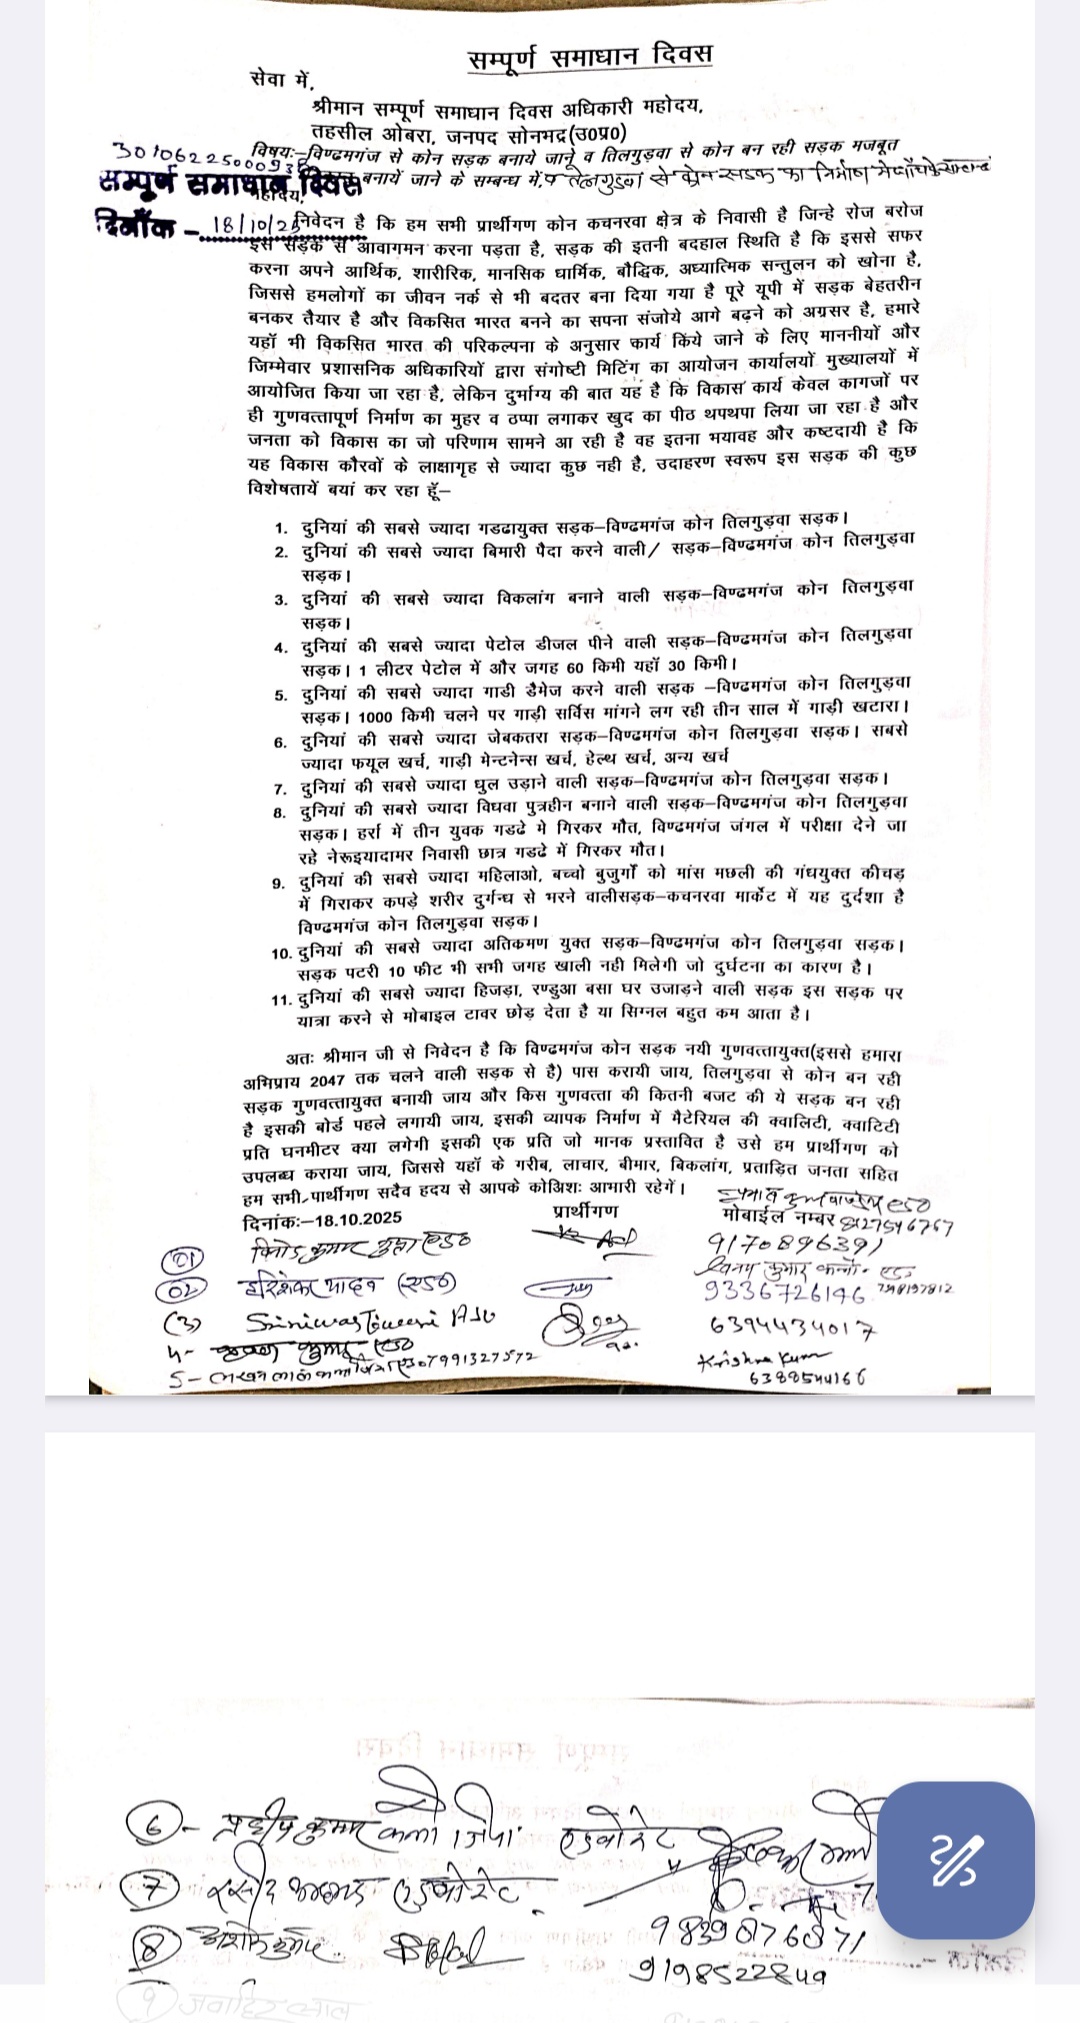 सम्पूर्ण समाधान दिवस
सेवा में,
श्रीमान सम्पूर्ण समाधान दिवस अधिकारी महोदय,
तहसील ओबरा, जनपद सोनभद्र(उ०प्र०)
विषयः–विण्ढमगंज से कोन सड़क बनाये जाने व तिलगुड़वा से कोन बन रही सड़क मजबूत
बनायें जाने के सम्बन्ध में, व तेलगुड़वा से कोन सड़क का निर्माण में
सम्पूर्ण समाधान दिवस
महोदय,
दिनाँक – 18/10/25
निवेदन है कि हम सभी प्रार्थीगण कोन कचनरवा क्षेत्र के निवासी है जिन्हे रोज बरोज
इस सड़क से आवागमन करना पड़ता है, सड़क की इतनी बदहाल स्थिति है कि इससे सफर
करना अपने आर्थिक, शारीरिक, मानसिक धार्मिक, बौद्धिक, अध्यात्मिक सन्तुलन को खोना है,
जिससे हमलोगों का जीवन नर्क से भी बदतर बना दिया गया है पूरे यूपी में सड़क बेहतरीन
बनकर तैयार है और विकसित भारत बनने का सपना संजोये आगे बढ़ने को अग्रसर है, हमारे
यहॉ भी विकसित भारत की परिकल्पना के अनुसार कार्य किंये जाने के लिए माननीयों और
जिम्मेवार प्रशासनिक अधिकारियों द्वारा संगोष्टी मिटिंग का आयोजन कार्यालयों मुख्यालयों में
आयोजित किया जा रहा है, लेकिन दुर्भाग्य की बात यह है कि विकास कार्य केवल कागजों पर
ही गुणवत्तापूर्ण निर्माण का मुहर व ठप्पा लगाकर खुद का पीठ थपथपा लिया जा रहा है और
जनता को विकास का जो परिणाम सामने आ रही है वह इतना भयावह और कष्टदायी है कि
यह विकास कौरवों के लाक्षागृह से ज्यादा कुछ नही है, उदाहरण स्वरूप इस सड़क की कुछ
विशेषतायें बयां कर रहा हूॅ–
1. दुनियां की सबसे ज्यादा गडढायुक्त सड़क–विण्ढमगंज कोन तिलगुड़वा सड़क।
2. दुनियां की सबसे ज्यादा बिमारी पैदा करने वाली/ सड़क–विण्ढमगंज कोन तिलगुड़वा
सड़क।
3. दुनियां की सबसे ज्यादा विकलांग बनाने वाली सड़क–विण्ढमगंज कोन तिलगुड़वा
सड़क।
4. दुनियां की सबसे ज्यादा पेटोल डीजल पीने वाली सड़क–विण्ढमगंज कोन तिलगुड़वा
सड़क। 1 लीटर पेटोल में और जगह 60 किमी यहॉ 30 किमी।
5. दुनियां की सबसे ज्यादा गाडी डैमेज करने वाली सड़क –विण्ढमगंज कोन तिलगुड़वा
सड़क। 1000 किमी चलने पर गाड़ी सर्विस मांगने लग रही तीन साल में गाड़ी खटारा।
6. दुनियां की सबसे ज्यादा जेबकतरा सड़क–विण्ढमगंज कोन तिलगुड़वा सड़क। सबसे
ज्यादा फयूल खर्च, गाड़ी मेन्टनेन्स खर्च, हेल्थ खर्च, अन्य खर्च
7. दुनियां की सबसे ज्यादा धुल उड़ाने वाली सड़क–विण्ढमगंज कोन तिलगुड़वा सड़क।
8. दुनियां की सबसे ज्यादा विधवा पुत्रहीन बनाने वाली सड़क–विण्ढमगंज कोन तिलगुड़वा
सड़क। हर्रा में तीन युवक गडढे मे गिरकर मौत, विण्ढमगंज जंगल में परीक्षा देने जा
रहे नेरूइयादामर निवासी छात्र गडढे में गिरकर मौत।
9. दुनियां की सबसे ज्यादा महिलाओ, बच्चो बुजुर्गों को मांस मछली की गंधयुक्त कीचड़
में गिराकर कपड़े शरीर दुर्गन्ध से भरने वालीसड़क–कचनरवा मार्केट में यह दुर्दशा है
विण्ढमगंज कोन तिलगुड़वा सड़क।
10. दुनियां की सबसे ज्यादा अतिकमण युक्त सड़क–विण्ढमगंज कोन तिलगुड़वा सड़क।
सड़क पटरी 10 फीट भी सभी जगह खाली नही मिलेगी जो दुर्घटना का कारण है।
11. दुनियां की सबसे ज्यादा हिजड़ा, रण्डुआ बसा घर उजाड़ने वाली सड़क इस सड़क पर
यात्रा करने से मोबाइल टावर छोड़ देता है या सिग्नल बहुत कम आता है।
अतः श्रीमान जी से निवेदन है कि विण्ढमगंज कोन सड़क नयी गुणवत्तायुक्त(इससे हमारा
अभिप्राय 2047 तक चलने वाली सड़क से है) पास करायी जाय, तिलगुड़वा से कोन बन रही
सड़क गुणवत्तायुक्त बनायी जाय और किस गुणवत्ता की कितनी बजट की ये सड़क बन रही
है इसकी बोर्ड पहले लगायी जाय, इसकी व्यापक निर्माण में मैटेरियल की क्वालिटी, क्वाटिटी
प्रति घनमीटर क्या लगेगी इसकी एक प्रति जो मानक प्रस्तावित है उसे हम प्रार्थीगण को
उपलब्ध कराया जाय, जिससे यहॉ के गरीब, लाचार, बीमार, बिकलांग, प्रताड़ित जनता सहित
हम सभी प्रार्थीगण सदैव हदय से आपके कोअिशः आभारी रहेगें।
दिनांकः–18.10.2025 प्रार्थीगण मोबाईल नम्बर 8127546767
9170896391
01 विनोद कुमार एड०
02 हरिशंकर यादव (एड०) 9336726146
(3) Sriniwas Tiwari Adv 6394434017
4- कुमार एड० Krishna Kumar
5- 7991327572 6388544166
6- प्रदीप कुमार कन्नौजिया एडवोकेट
7 रसीद अहमद एडवोकेट
8 अशोक कुमार 9839076871
9198522849
9 जवाहिर लाल